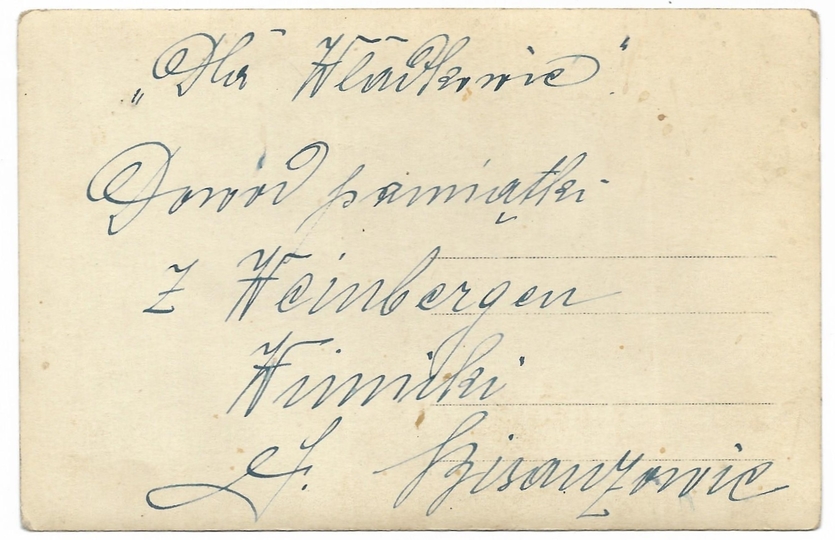 „Dla Władkowie"
Dowód pamiątki
z Weinbergen
Winniki
Bisanzowie